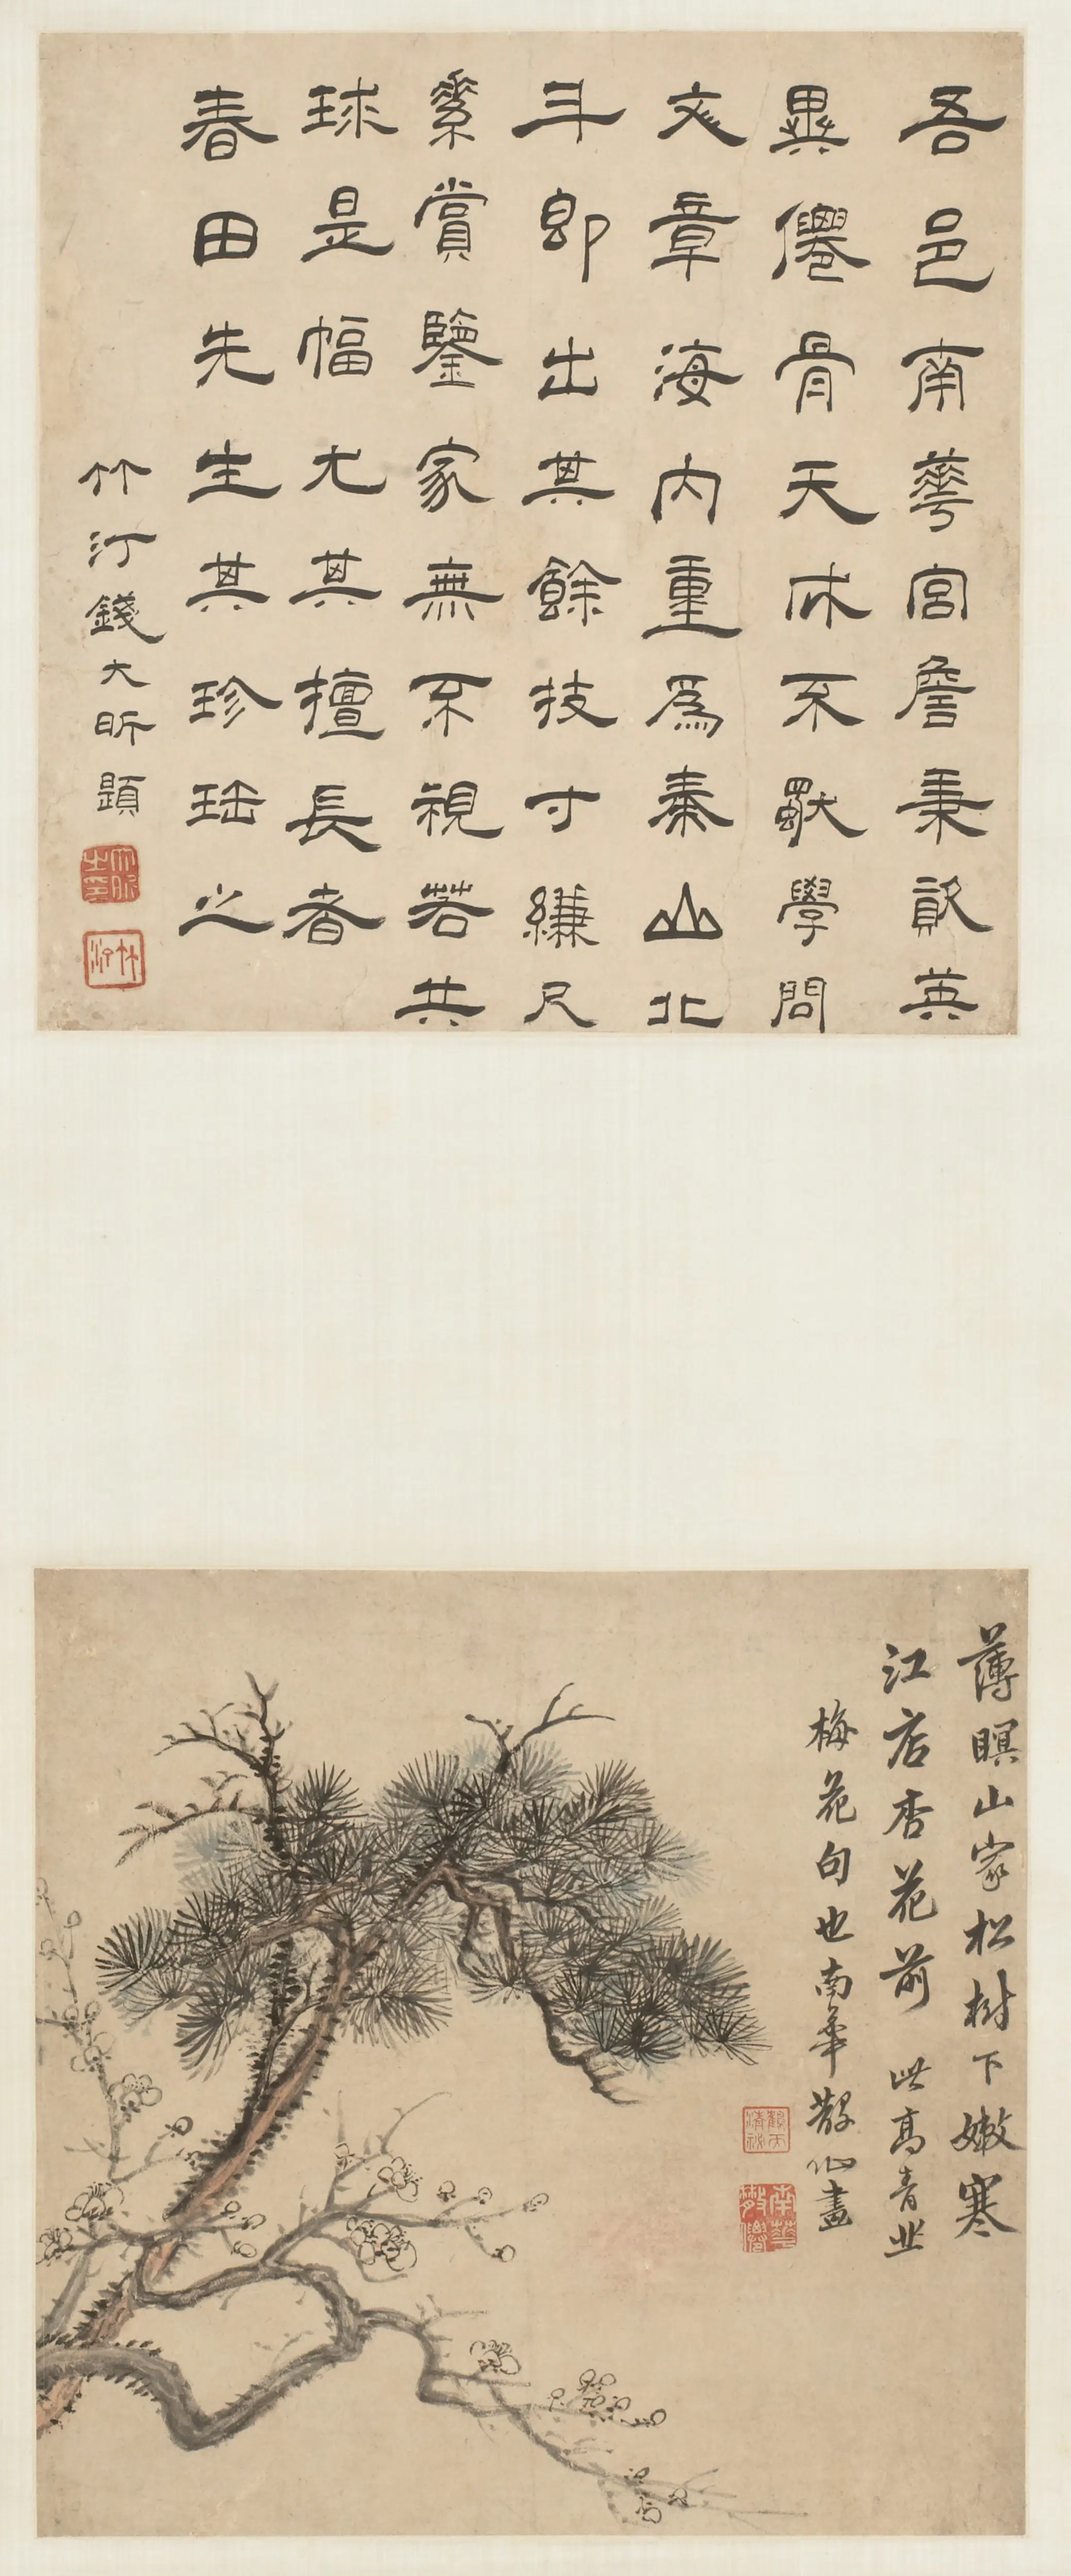 吾邑南華宮詹秉敻英
異僊骨天成不猒學問
文章海内重爲泰山北
斗即出其餘技寸縑尺
素賞鑒家無不視若共
球是幅尤其擅長者
春田先生其珍𤥨之
竹汀錢大昕題
大昕之印
竹汀
薄暝山家松樹下嫩寒
江店杏花前 此高青丘
梅花句也南華散仙畫
南華散僊